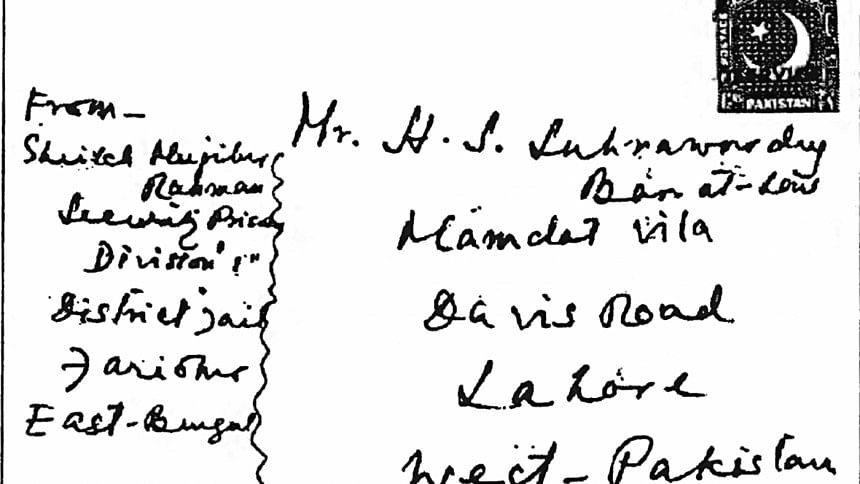 From –
Sheikh Mujibur
Rahman
Security Prison
Division "1"
District Jail
Faridpur
East-Bengal
Mr. H. S. Suhrawordy
Bar-at-Law
Mamdat Vila
Davis Road
Lahore
West-Pakistan
PAKISTAN